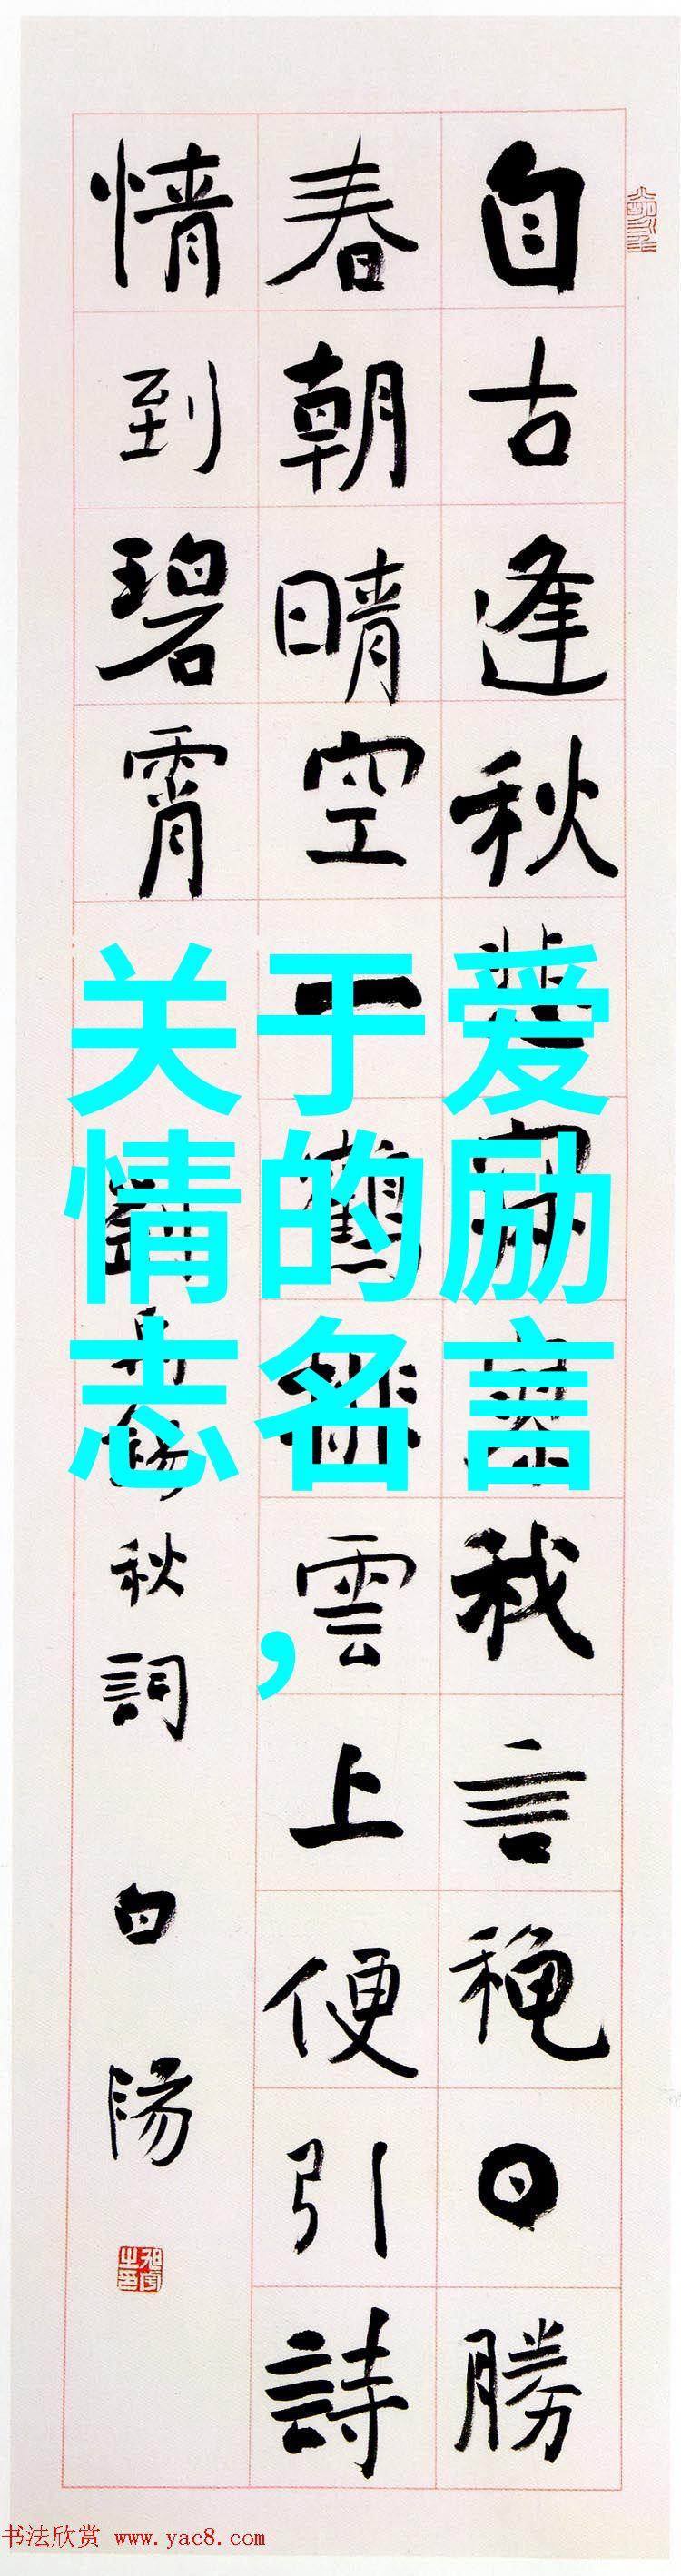 自古逢秋悲寂寥我言穐日勝
春朝晴空一鶴排雲上便引詩
情到碧霄
劉禹錫秋詞
白陽
关于爱
情的励
志名言
，
书法欣赏 www.yac8.com